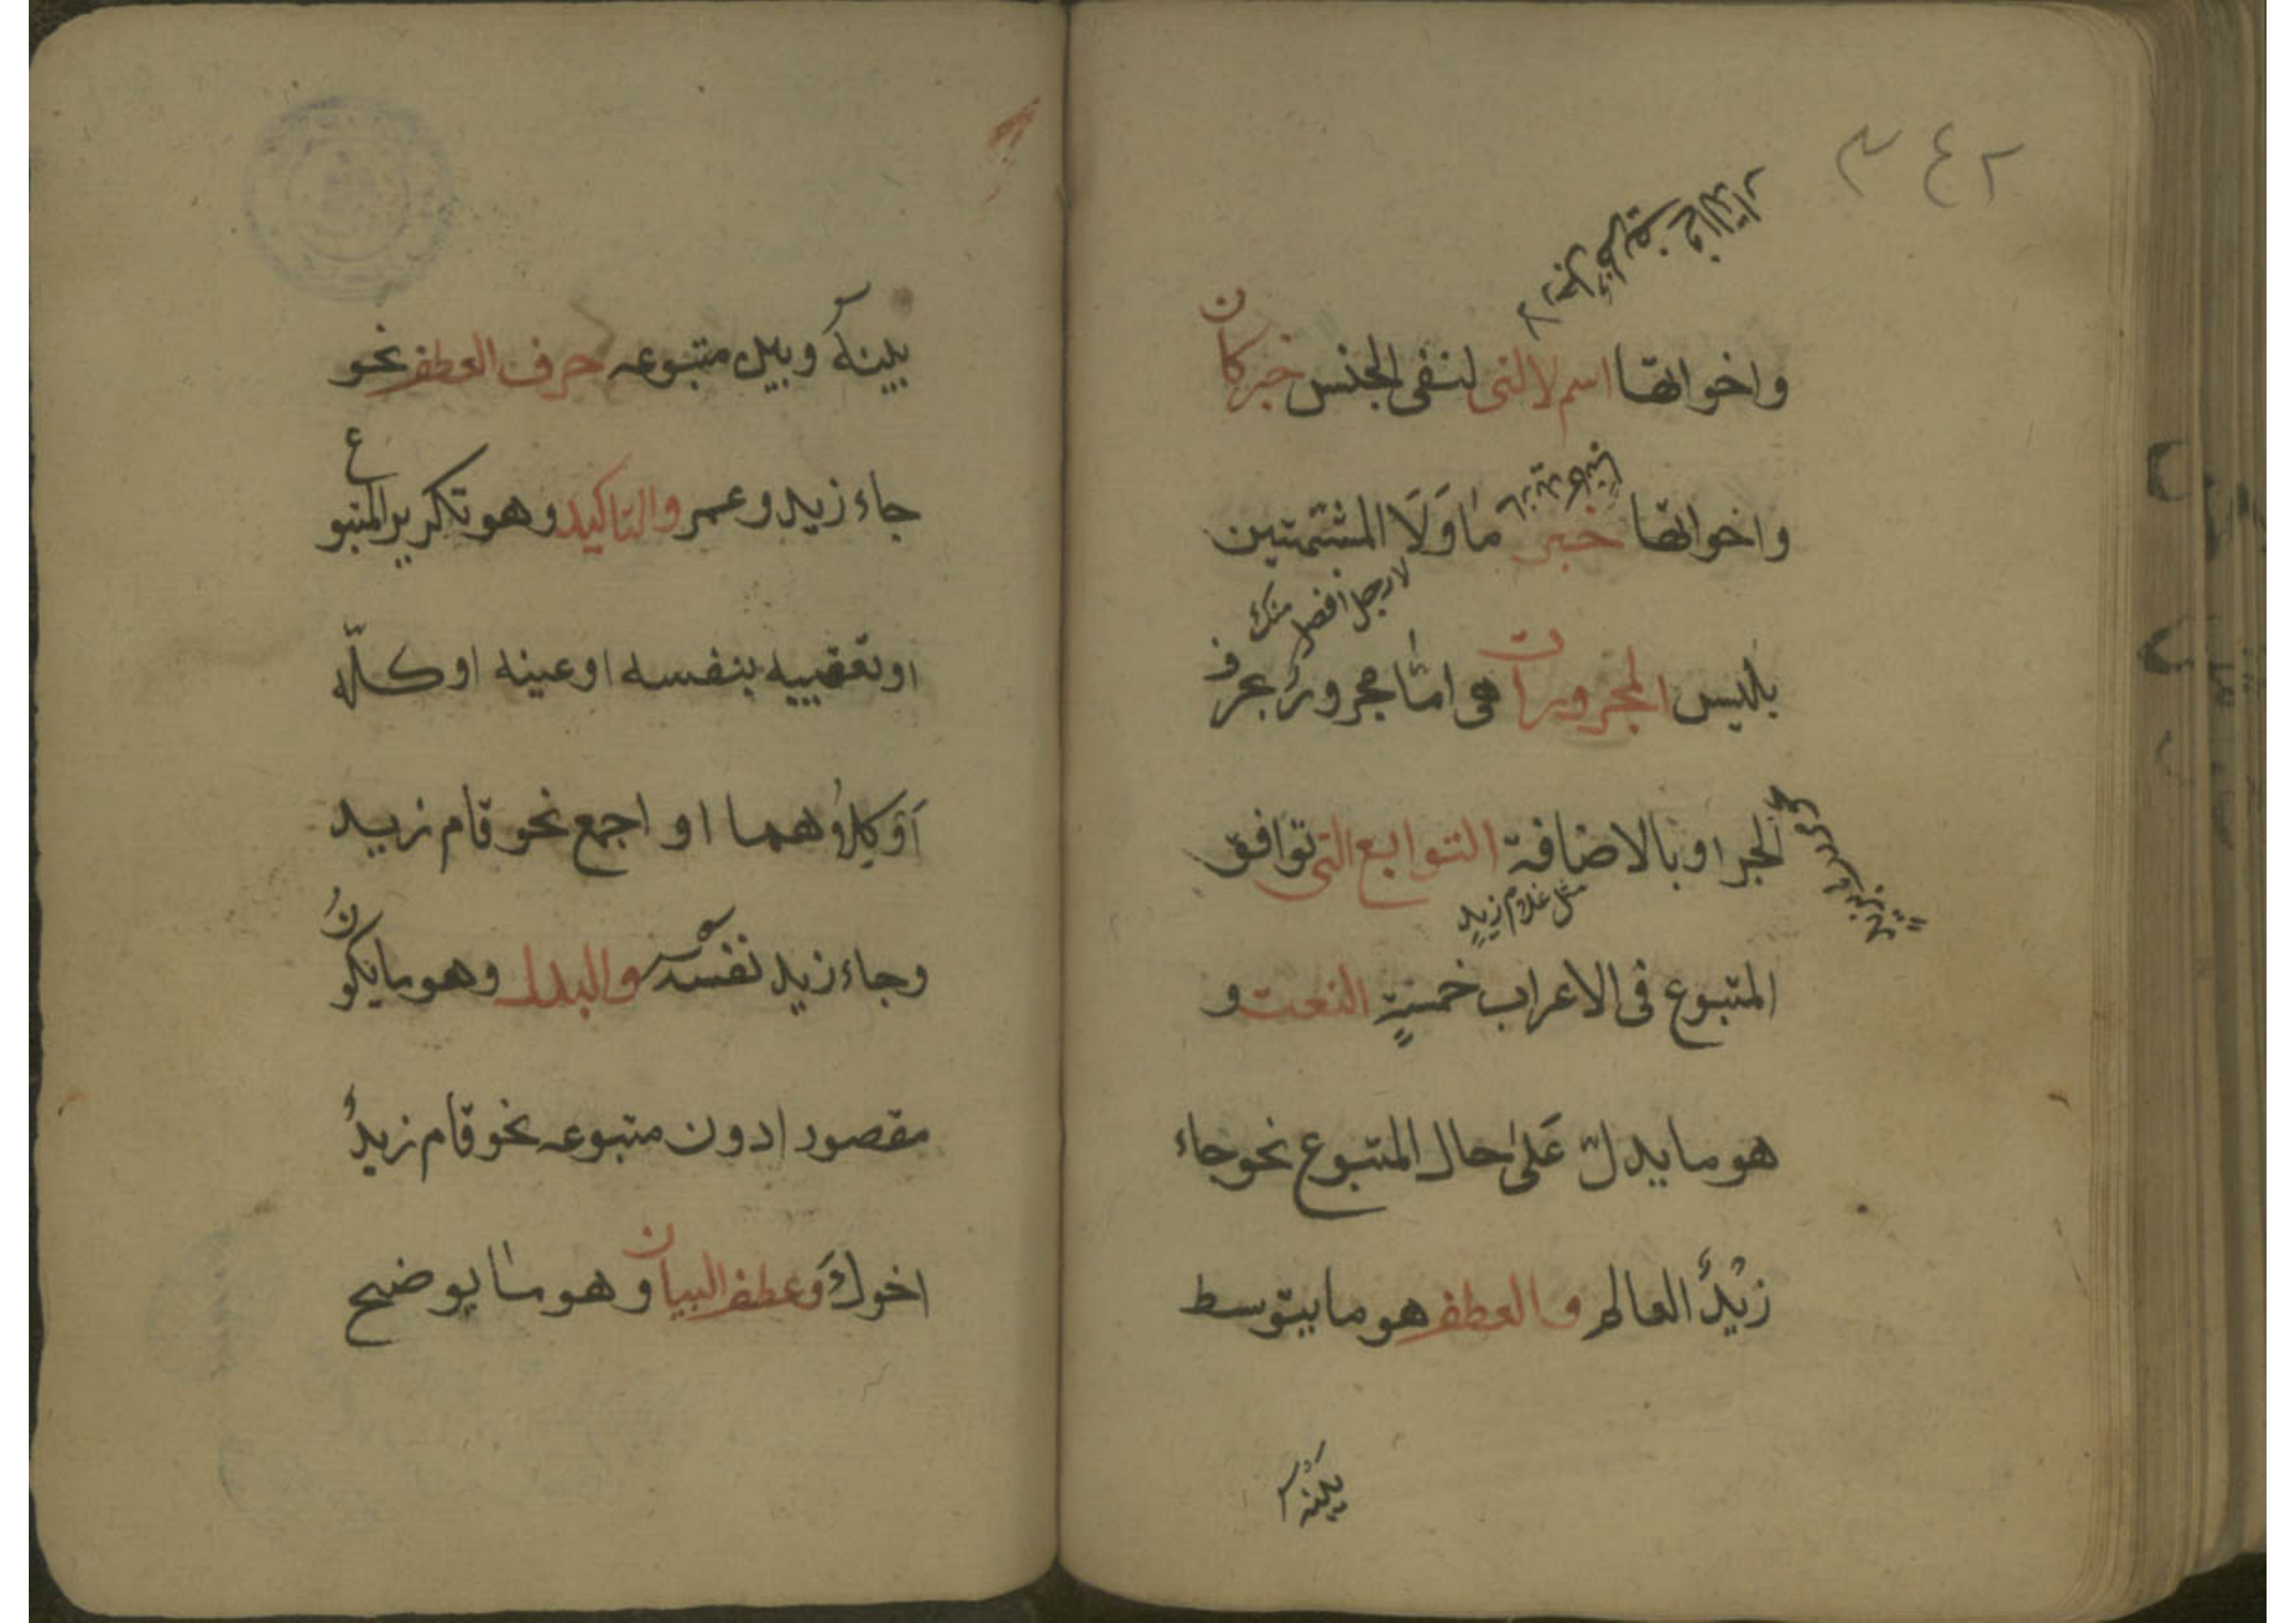 ٣٤٢
واخواتها اسم لا التى لنفى الجنس خبر كان
واخواتها خبر مَا وَلَا المشبّهتين
لا رجل افضل منك
بليس المجرورات هى امّا مجرورٌ بحرف
الجر او بالاضافة التوابع التى توافق
مثل غلام زيدٍ
المتبوع فى الاعراب خمسةٍ النعت و
هو ما يدلّ عَلىٰ حال المتبوع نحو جاء
زَيْدٌ العالم والعطف هو ما يتوسط
بينه
بينهُ وبين متبوعه حرف العطف نحو
جاء زيد وعمر والتاكيد وهو تكرير المتبوع
او تعقيبه بنفسه او عينه او كلّه
اَوْ كِلاُهما او اجمع نحو قام زيد
وجاء زيد نفسه والبدل وهو ما يكونُ
مقصودا دون متبوعه نحو قام زيدٌ
اخوكَ وَعطف البيان وهو ما يوضح